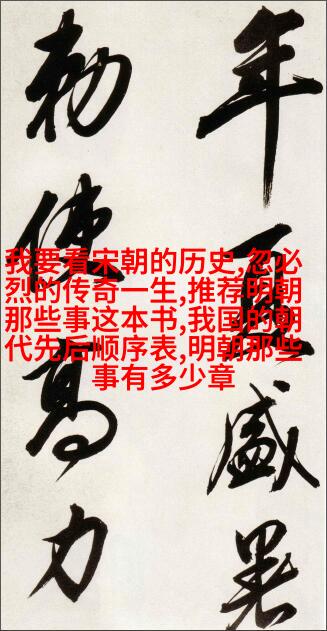 年夏盛暑
勅使高力
我要看宋朝的历史,忽必
烈的传奇一生,推荐明朝
那些事这本书,我国的朝
代先后顺序表,明朝那些
事有多少章